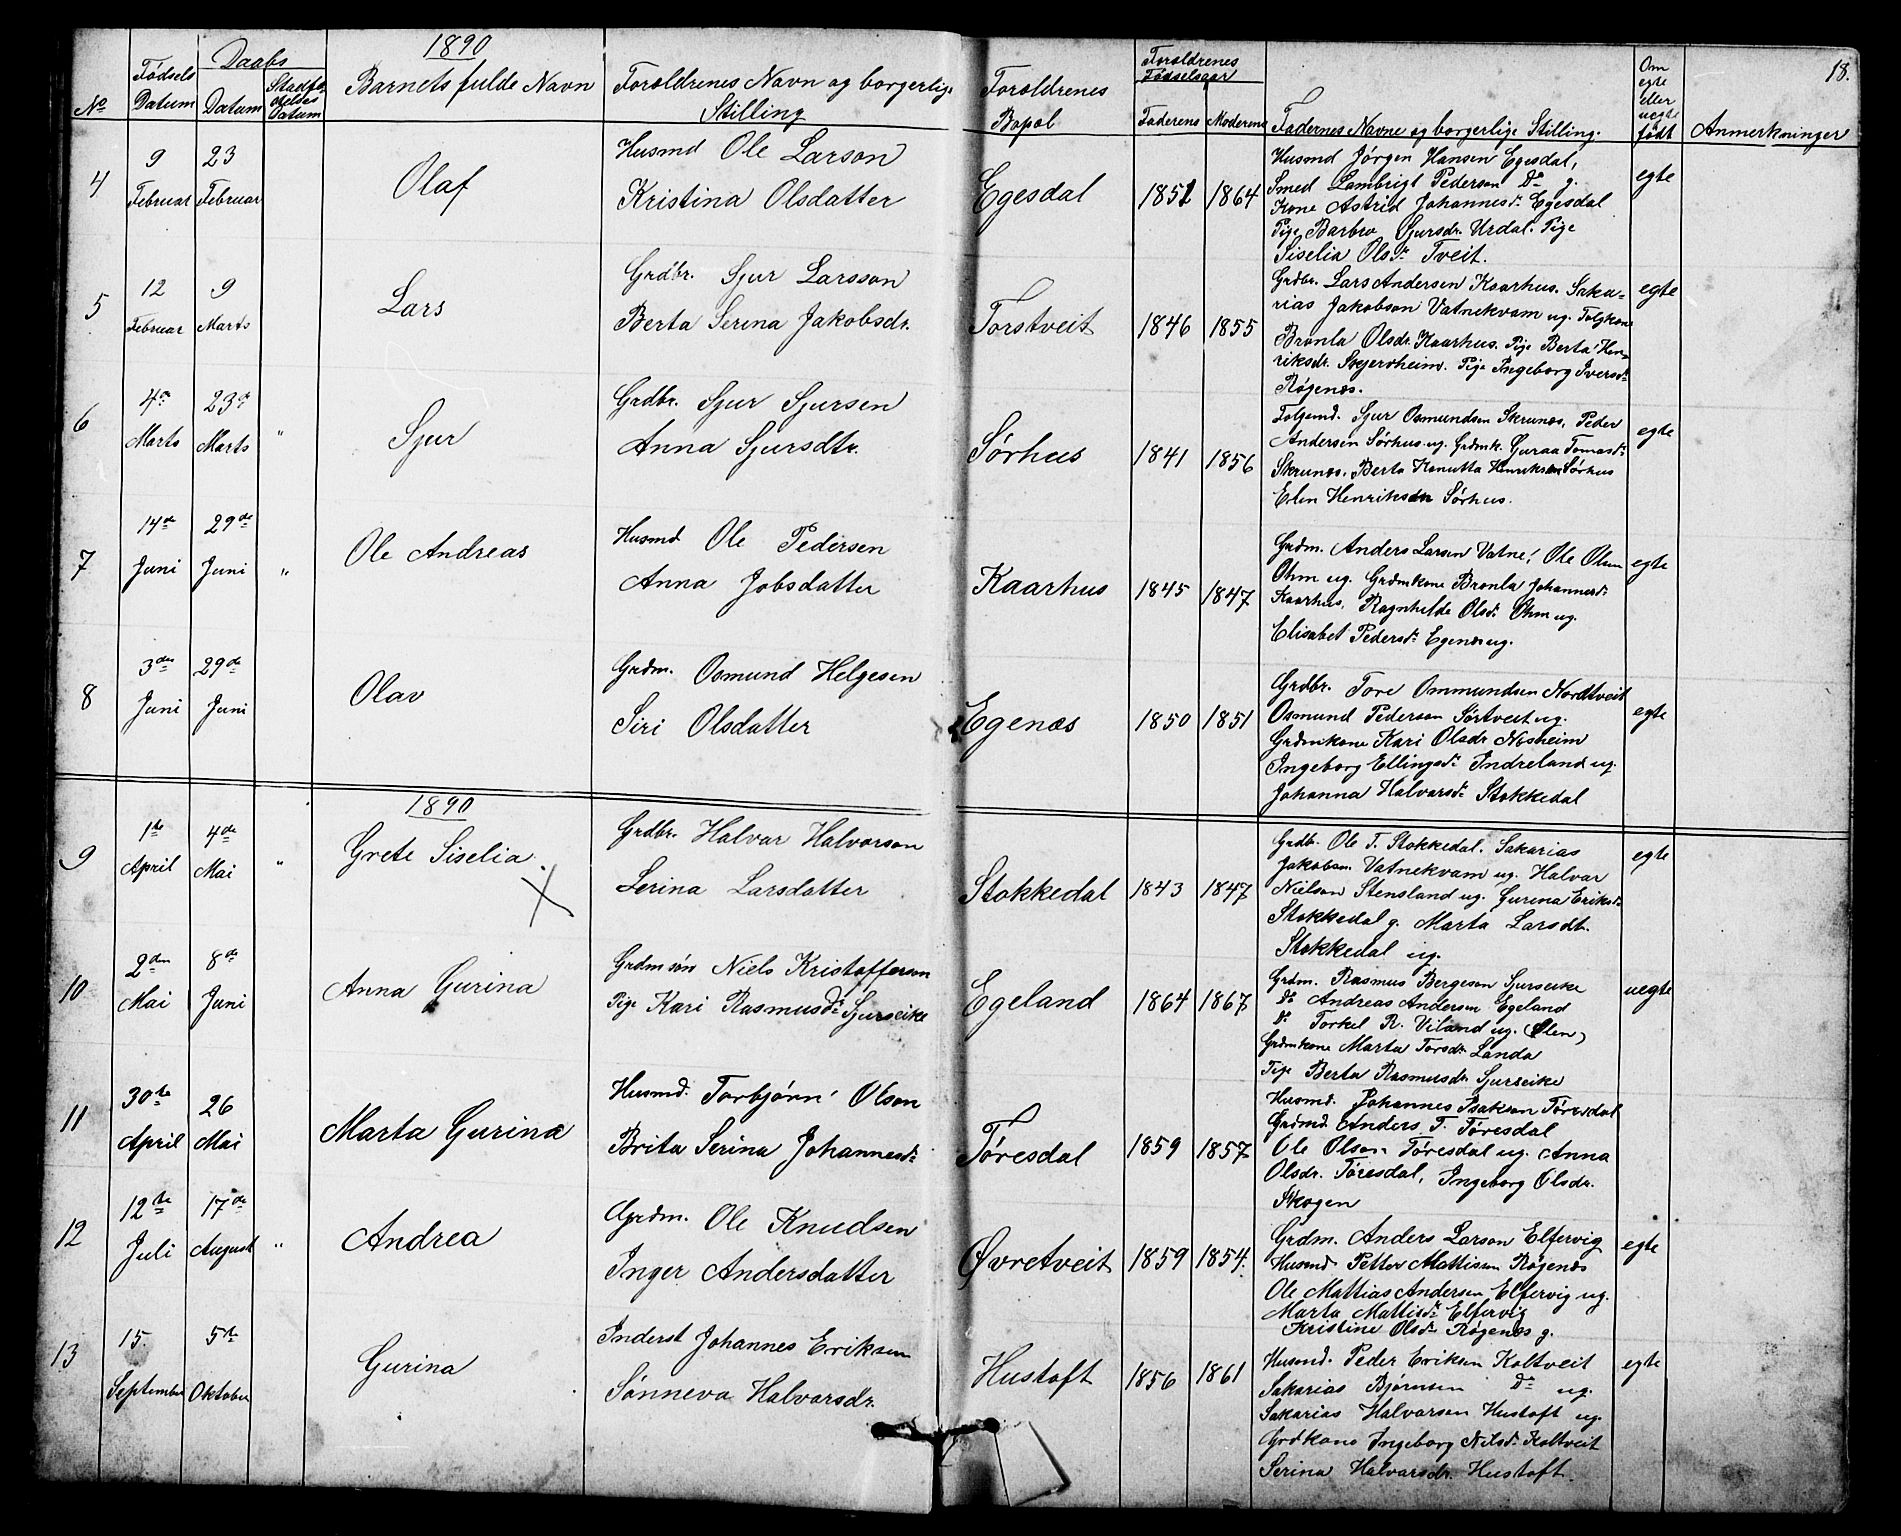 1890
18.
No
Fødsels Datum
Daabs
Datum
Stadfæ-
stelses
Datum
Barnets fulde Navn
Forældrenes Navn og borgerlige
Stilling
Forældrenes
Bopæl
Forældrenes
Fødselsaar
Faderens
Moderens
Faddernes Navne og borgerlige Stilling.
Om
egte
eller
uegte
født
Anmerkninger
4
9
Februar
23
Februar
Olaf
Husmd Ole Larson
Kristina Olsdatter
Egesdal
1851
1864
Husmd Jørgen Hansen Egesdal,
Smed Lambrigt Pederson Do g.
Kone Astrid Johannesdr. Egesdal
Pige Barbro Sjursdr. Urdal. Pige
Siselia Olsdr Tveit.
egte
5
12
Februar
9
Marts
Lars
Grdbr. Sjur Larsson
Berta Serina Jakobsdr.
Torstveit
1846
1855
Grdbr. Lars Andersen Kaarhus. Saka-
rias Jakobson Vatnekvam ug. Folgkone
Bronla Olsdr. Kaarhus. Pige Berta Hen-
riksdr. Skjerdheim. Pige Ingeborg Iversdr
Røgenæs.
egte
6
4de
Marts
23de
Marts
"
Sjur
Grdbr. Sjur Sjursen
Anna Sjursdtr.
Sørhus
1841
1856
Folgemd. Sjur Osmundsen Skrunæs, Peder
Andersen Sørhus ug. Grdmk. Guraa Tomasdr
Skrunæs. Berta Knutta Henriksen Sørhus
Elen Henriksdr Sørhus.
egte
7
14de
Juni
29de
Juni
"
Ole Andreas
Husmd Ole Pedersen
Anna Jobsdatter
Kaarhus
1845
1847
Grdm. Anders Larsen Vatne, Ole Olsen
Ohm ug. Grdmkone Bronla Johannesdr
Kaarhus, Ragnhilde Olsdr. Ohm ug.
Elisabet Pedersdr Egenæs ug.
egte
8
3die
Juni
29de
Juni
Olav
Grdm. Osmund Helgesen
Siri Olsdatter
Egenæs
1850
1851
Grdbr. Tore Ommundsen Nordtveit
Osmund Pederson Sørtveit ug.
Grdmkone Kari Olsdr Nesheim
Ingeborg Ellingsdr Indreland ug.
Johanna Halvarsdr Stokkedal
egte
1890
9
1te
April
4de
Mai
"
Grete Siselia
X
Grdbr. Halvar Halvorson
Serina Larsdatter
Stokkedal
1843
1847
Grdb. Ole T. Stokkedal. Sakarias
Jakobsen Vatnekvam ug. Halvar
Nielson Stensland ug. Gurina Eriksdr
Stokkedal g. Marta Larsdt.
Stokkedal ug.
egte
10
2den
Mai
8de
Juni
Anna Gurina
Grdm søn Niels Kristofferson
Pige Kari Rasmusdr Sjurseike
Egeland
1864
1867
Grdm. Rasmus Bergeson Sjurseike
Do Andreas Andersen Egeland
Do Torkel R. Viland ug. (Ølen)
Grdmkone Marta Torsdr Landa
Pige Berta Rasmusdr Sjurseike
uegte
11
30te
April
26
Mai
Marta Gurina
Husmd. Torbjørn Olson
Brita Serina Johannesdr
Tøresdal
1859
1857
Husmd. Johannes Isakson Tøresdal
Grdmd Anders T. Tøresdal
Ole Olson Tøresdal ug. Anna
Olsdr. Tøresdal, Ingeborg Olsdr.
Skogen
12
12te
Juli
17de
August
"
Andrea
Grdm. Ole Knudsen
Inger Andersdatter
Øvretveit
1859
1854.
Grdm. Anders Larson Elfervig
Husmd Petter Mattisen Røgenæs
Ole Mattias Andersen Elfervig ug.
Marta Mattisdr Elfervig
Kristine Olsdr Røgenæs g.
egte
13
15.
September
5te
Oktober
Gurina
Inderst Johannes Eriksen
Sønneva Halvarsdr.
Hustoft
1856
1861
Husmd. Peder Eriksen Koltveit
Sakarias Bjørnsen Do ug.
Sakarias Halvarsen Hustoft ug.
Grdkone Ingeborg Nilsdr Koltveit
Serina Halvarsdr. Hustoft.
egte